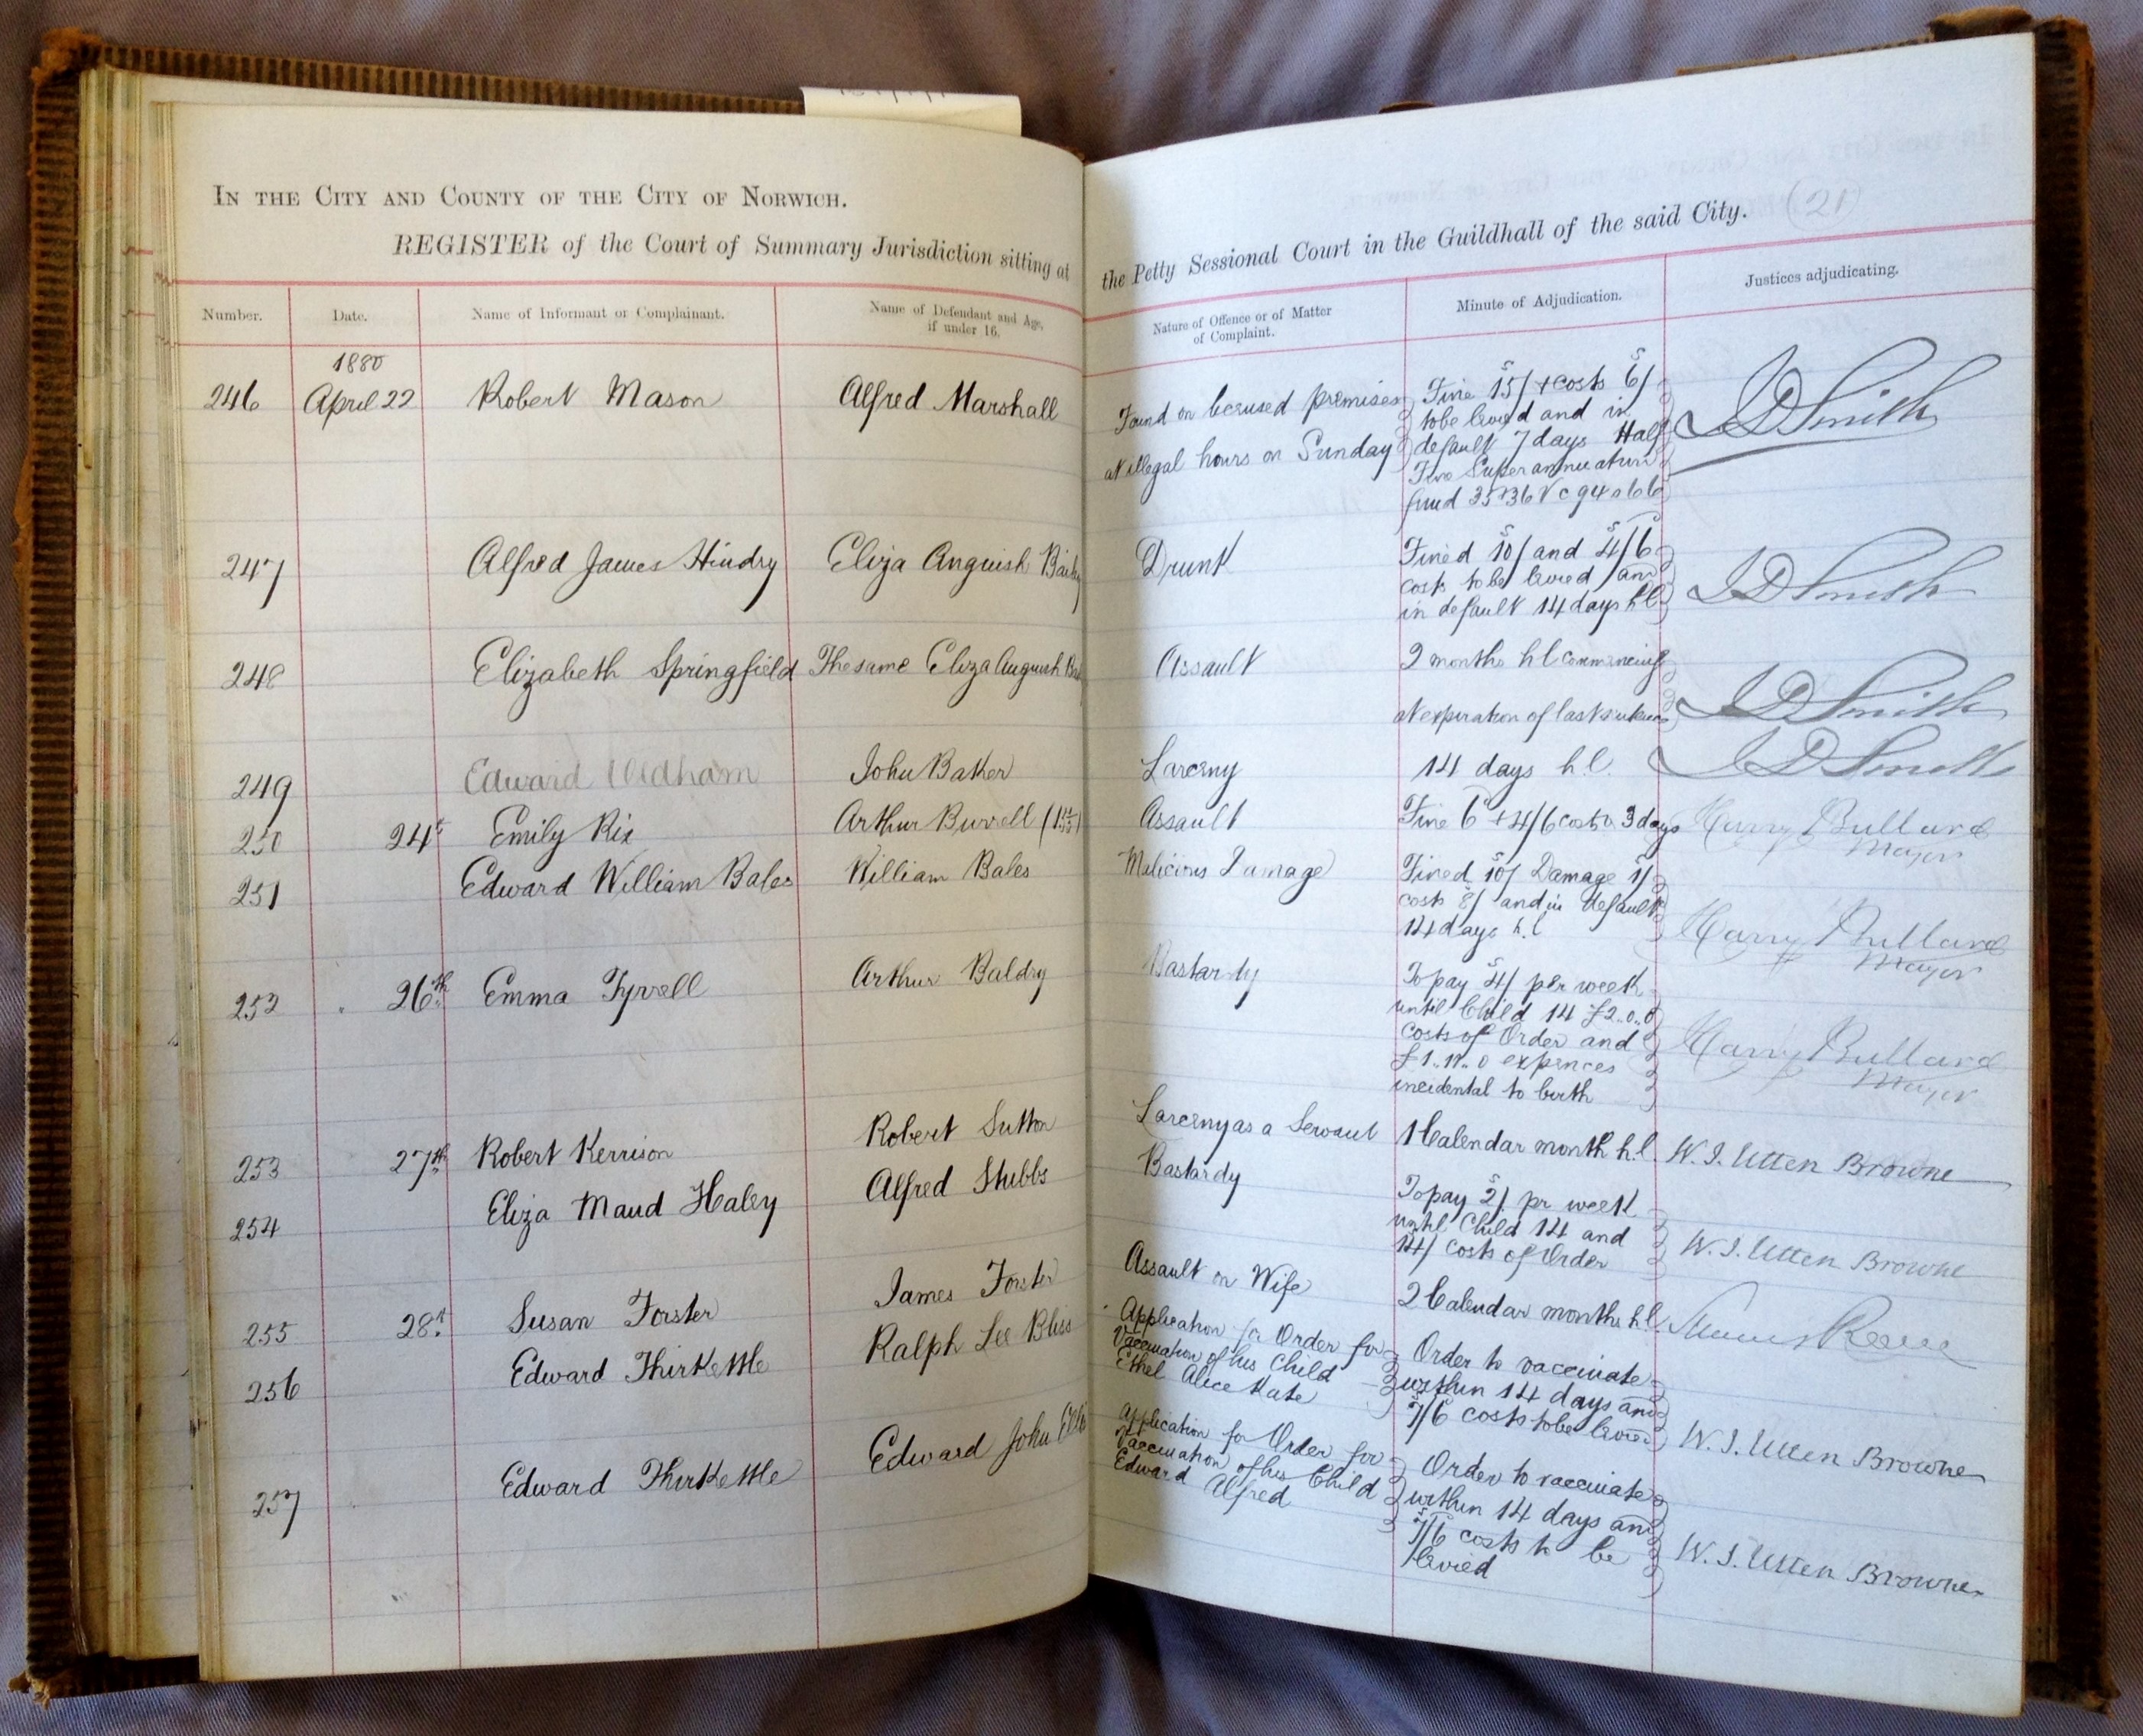 IN THE CITY AND COUNTY OF THE CITY OF NORWICH.
REGISTER of the Court of Summary Jurisdiction sitting at the Petty Sessional Court in the Guildhall of the said City. (21)
Number. Date. Name of Informant or Complainant. Name of Defendant and Age, if under 16. Nature of Offence or of Matter of Complaint. Minute of Adjudication. Justices adjudicating.
1880
246 April 22 Robert Mason Alfred Marshall
Found on licensed premises
at illegal hours on Sunday
Fine 15/ + costs 6/
to be levied and in
default 7 days Half
Fine Superannuation
fund 35+36 V c 94 s 66
JD Smith
247 Alfred James Hindry Eliza Anguish
Drunk
Fined 10/ and 4/6
costs to be levied and
in default 14 days h.l
JD Smith
248 Elizabeth Springfield The same Eliza Anguish
Assault
2 months h l commencing
at expiration of last sentence
JD Smith
249 Edward Oldham John Baker Larceny 14 days h.l. JD Smith
250 24th Emily Rix Arthur Burrell Assault Fine 6 + 4/6 costs or 3 days Harry Bullard
Mayor
251 Edward William Bales William Bales Malicious Damage
Fined 10/ Damage 1/
costs 8/ and in default
14 days h.l
Harry Bullard
Mayor
252 26th Emma Tyrrell Arthur Baldry Bastardy
To pay 4/ per week
until Child 14 £2.0.0
costs of Order and
expences
incidental to birth
Harry Bullard
Mayor
253 27th Robert Kerrison Robert Sutton Larceny as a Servant 1 Calendar month h.l. W. J. Utten Browne
254 Eliza Maud Haley Alfred Stubbs Bastardy
To pay 2/ pr week
until Child 14 and
14/ costs of Order
W. J. Utten Browne
255 28th Susan Forster James Forster Assault on Wife 2 Calendar months h.l.
256 Edward Thirkettle Ralph Lee Bliss
Application for Order for
Vaccination of his Child
Ethel Alice Kate
Order to vaccinate
within 14 days and
7/6 costs to be levied
W. J. Utten Browne
257 Edward Thirkettle Edward John
Application for Order for
Vaccination of his Child
Edward Alfred
Order to vaccinate
within 14 days and
7/6 costs to be
levied
W. J. Utten Browne